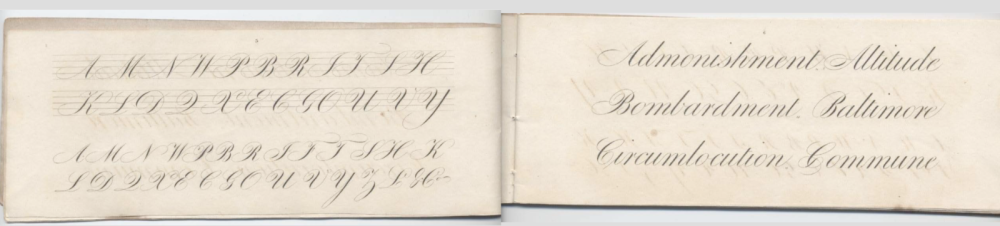 A M N W P B R I T S H
K L D Q X E C G O U V Y
A M N W P B R I F T S H K
L D Q X E C G O U V Y Z & &c
Admonishment. Altitude
Bombardment. Baltimore
Circumlocution. Commune